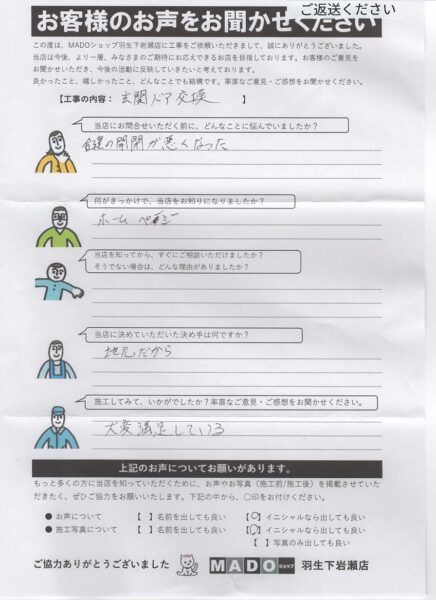 ご返送ください
お客様のお声をお聞かせください
この度は、MADOショップ羽生下岩瀬店に工事をご依頼いただきまして、誠にありがとうございました。
当店は今後、より一層、みなさまのご期待にお応えできるお店を目指しております。お客様のご意見を
お聞かせいただき、今後の活動に反映していきたいと考えております。
良かったこと、嬉しかったこと、どんなことでも結構です。率直なご意見・ご感想をお聞かせください。
【工事の内容： 玄関ドア交換 】
当店にお問合せいただく前に、どんなことに悩んでいましたか？
鍵の開閉が悪くなった
何がきっかけで、当店をお知りになりましたか？
ホームページ
当店を知ってから、すぐにご相談いただけましたか？
そうでない場合は、どんな理由がありましたか？
当店に決めていただいた決め手は何ですか？
地元だから
施工してみて、いかがでしたか？率直なご意見・ご感想をお聞かせください。
大変満足している
上記のお声についてお願いがあります。
もっと多くの方に当店を知っていただくために、お声やお写真（施工前/施工後）を掲載させていた
だきたく、ぜひご協力をお願いいたします。下記の中から、○印をお付けください。
● お声について 【 】名前を出しても良い 【○】イニシャルなら出しても良い
● 施工写真について 【 】名前を出しても良い 【○】イニシャルなら出しても良い
【 】写真のみ出しても良い
ご協力ありがとうございました MADOショップ 羽生下岩瀬店